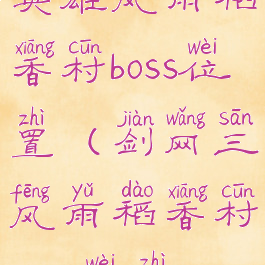 英雄风雨稻
xiāng cūn wèi
香村boss位
zhì jiàn wǎng sān
置（剑网三
fēng yǔ dào xiāng cūn
风雨稻香村
wèi zhì